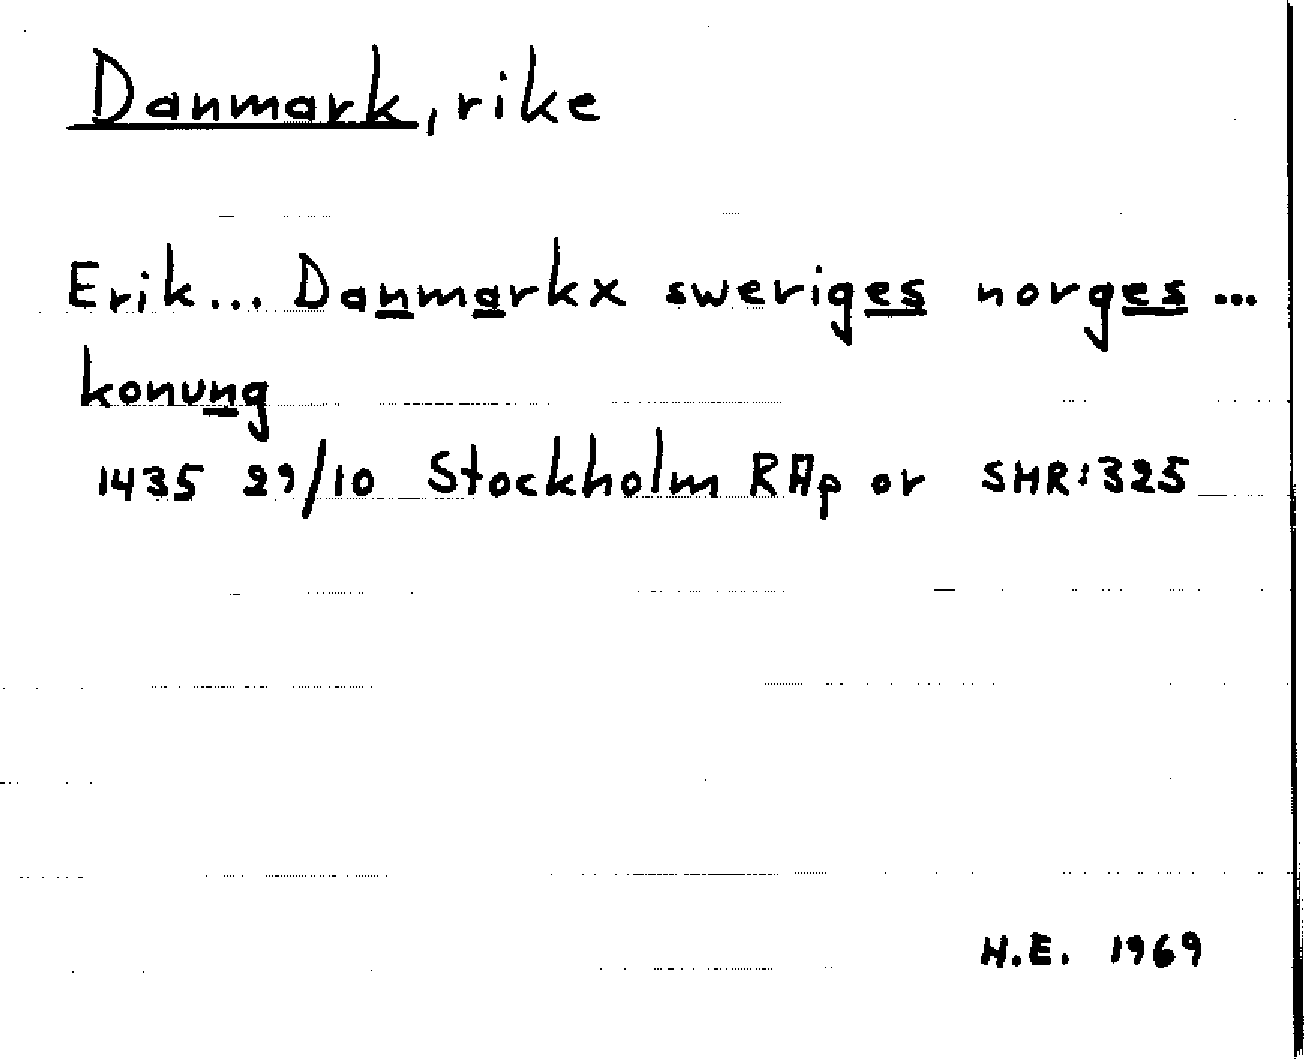 Danmark, rike
Erik... Danmarkx sweriges norges ...
konung
1435 29/10 Stockholm RAp or SMR:325
H.E. 1969